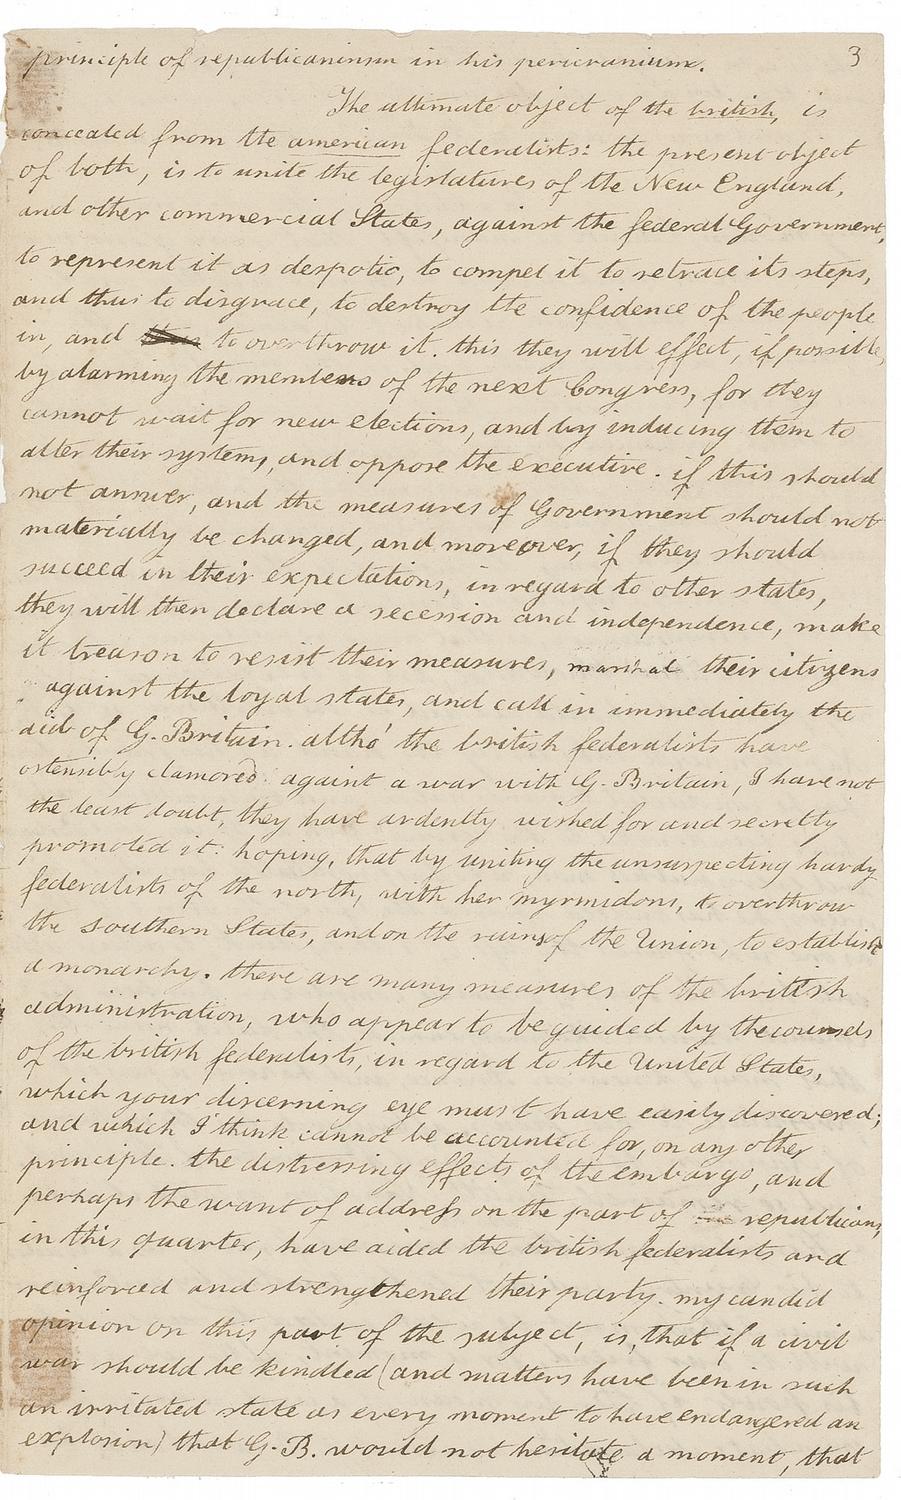 3
principle of republicanism in his pericranium.
The ultimate object of the british, is
concealed from the american federalists: the present object
of both, is to unite the legislatures of the New England,
and other commercial States, against the federal Government,
to represent it as despotic, to compel it to retrace its steps,
and thus to disgrace, to destroy the confidence of the people
in, and to overthrow it. this they will effect, if possible,
by alarming the members of the next Congress, for they
cannot wait for new elections, and by inducing them to
alter their system, and oppose the executive. if this should
not answer, and the measures of Government should not
materially be changed, and moreover, if they should
succeed in their expectations, in regard to other states,
they will then declare a secession and independence, make
it treason to resist their measures, marshal their citizens
against the loyal states, and call in immediately the
aid of G. Britain. altho' the british federalists have
ostensibly clamored against a war with G. Britain, I have not
the least doubt, they have ardently wished for and secretly
promoted it: hoping, that by uniting the unsuspecting hardy
federalists of the north, with her myrmidons, to overthrow
the southern States, and on the ruins of the Union, to establish
a monarchy. there are many measures of the british
administration, who appear to be guided by the counsels
of the british federalists, in regard to the United States,
which your discerning eye must have easily discovered;
and which I think cannot be accounted for, on any other
principle. the distressing effects of the embargo, and
perhaps the want of address on the part of republicans,
in this quarter, have aided the british federalists and
reinforced and strengthened their party. my candid
opinion on this part of the subject, is, that if a civil
war should be kindled (and matters have been in such
an irritated state as every moment to have endangered an
explosion) that G. B. would not hesitate a moment, that